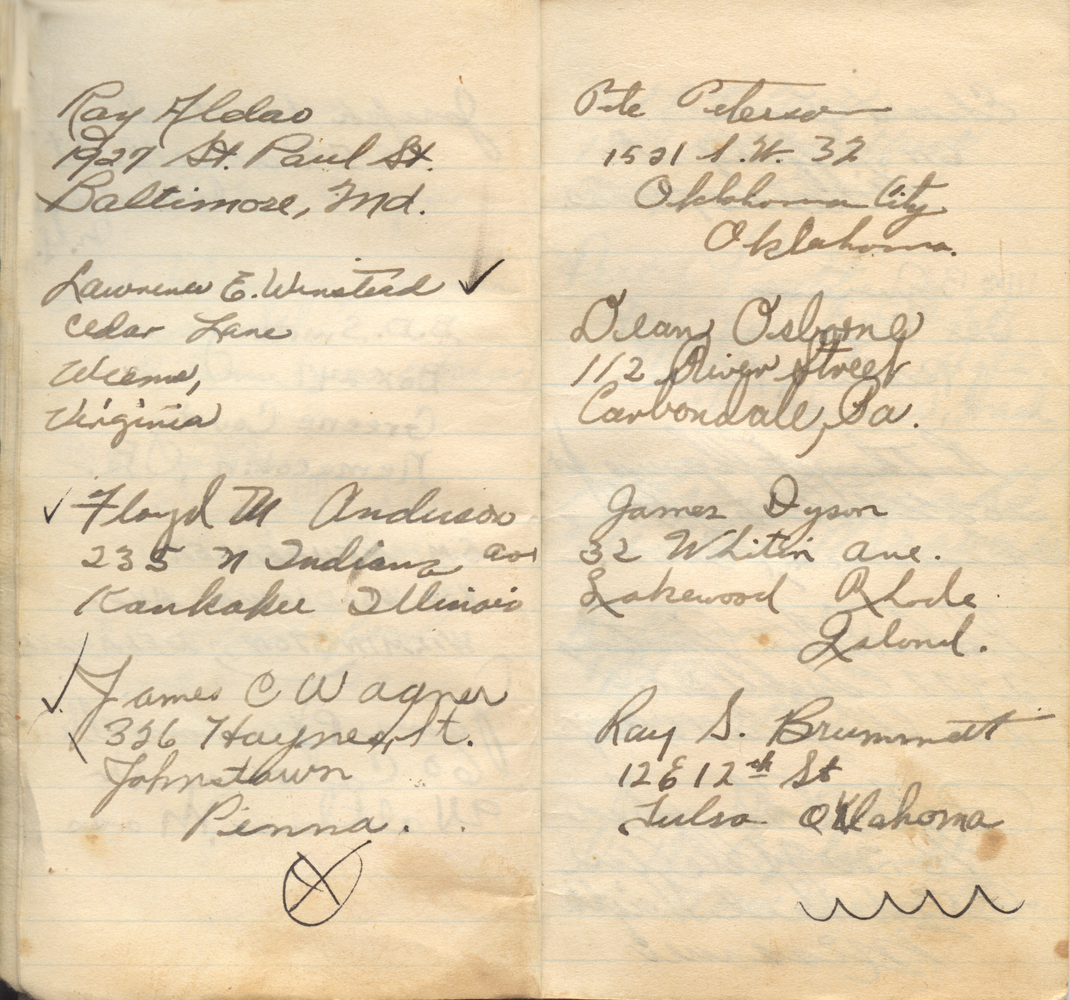 Ray Aldao
1927 St. Paul St.
Baltimore, Md.
Lawrence E. Winstead
Cedar Lane
Weems,
Virginia
Floyd M Anderson
235 N Indiana ave
Kankakee Illinois
James C Wagner
326 Haynes St.
Johnstown
Penna.
Pete Peterson
1521 S.W. 32
Oklahoma City
Oklahoma.
Dean Osborne
112 River Street
Carbondale, Pa.
James Dyson
32 Whitin ave.
Lakewood Rhode
Island.
Ray S. Brummett
12 E 12th St
Tulsa Oklahoma